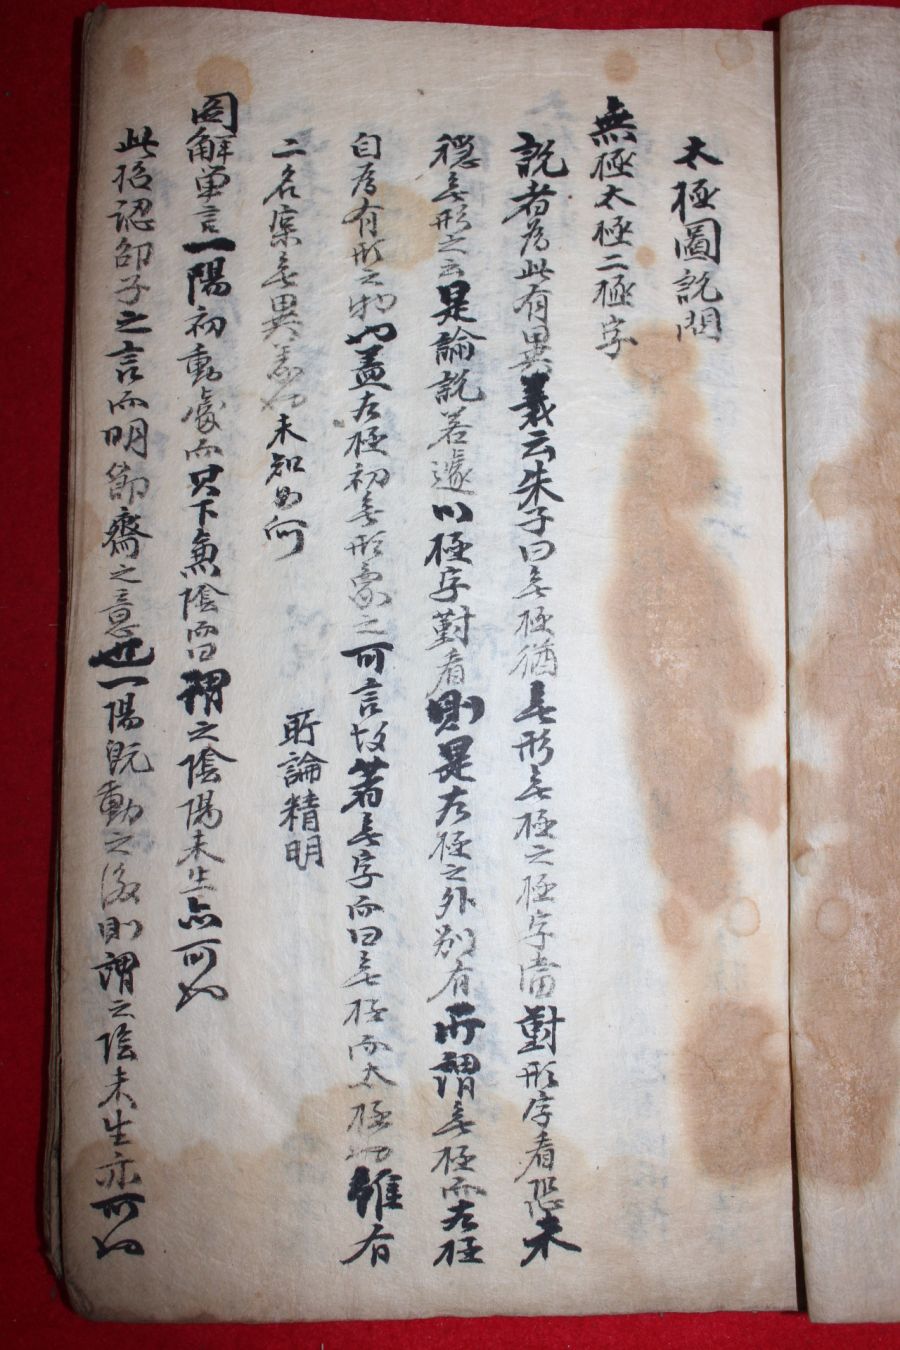 太極圖說問
無極太極二極字
說者爲此有異義云朱子曰無極猶無形無極之極字當對形字看恐未
穩無形之云是論說若遽以極字對看則是太極之外別有所謂無極而太極
自爲有形之物也盖太極初無形象之可言故着無字而曰無極而太極也雖有
二名案無異義也未知如何 所論精明
圖解單言一陽初動處而只下無陰而曰謂之陰陽未生亦可也
此恐認邵子之言而明節齋之意也一陽旣動之後則謂之陰未生亦可也